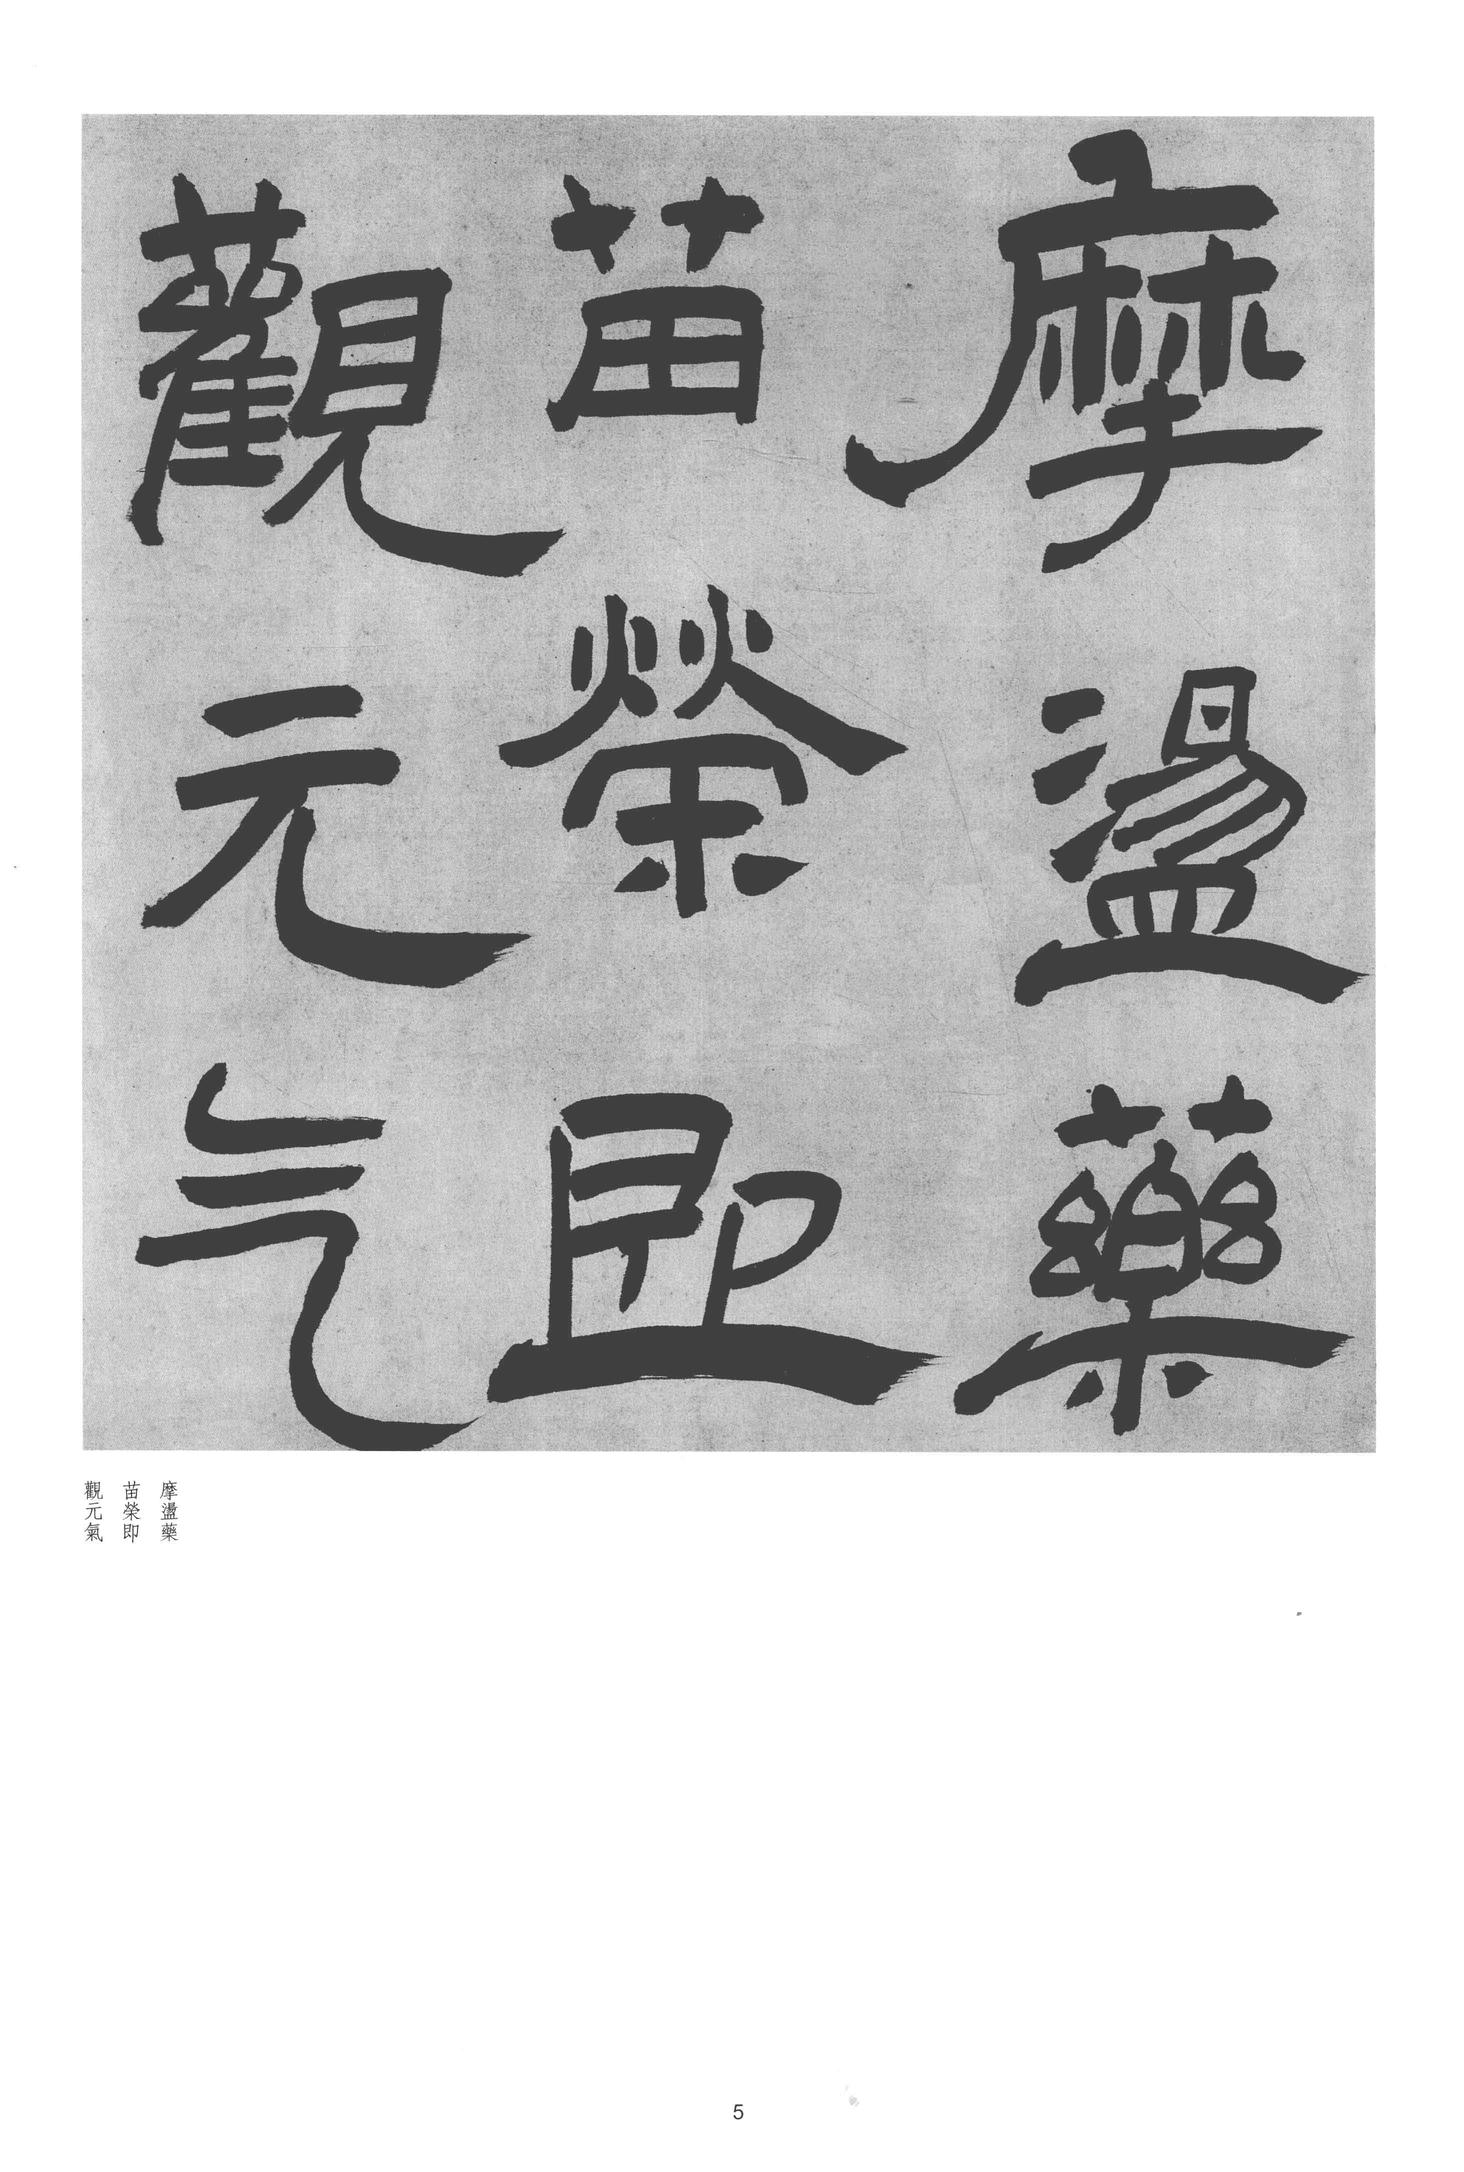 摩盪藥
苗榮即
觀元气
摩盪藥
苗榮即
觀元氣
5